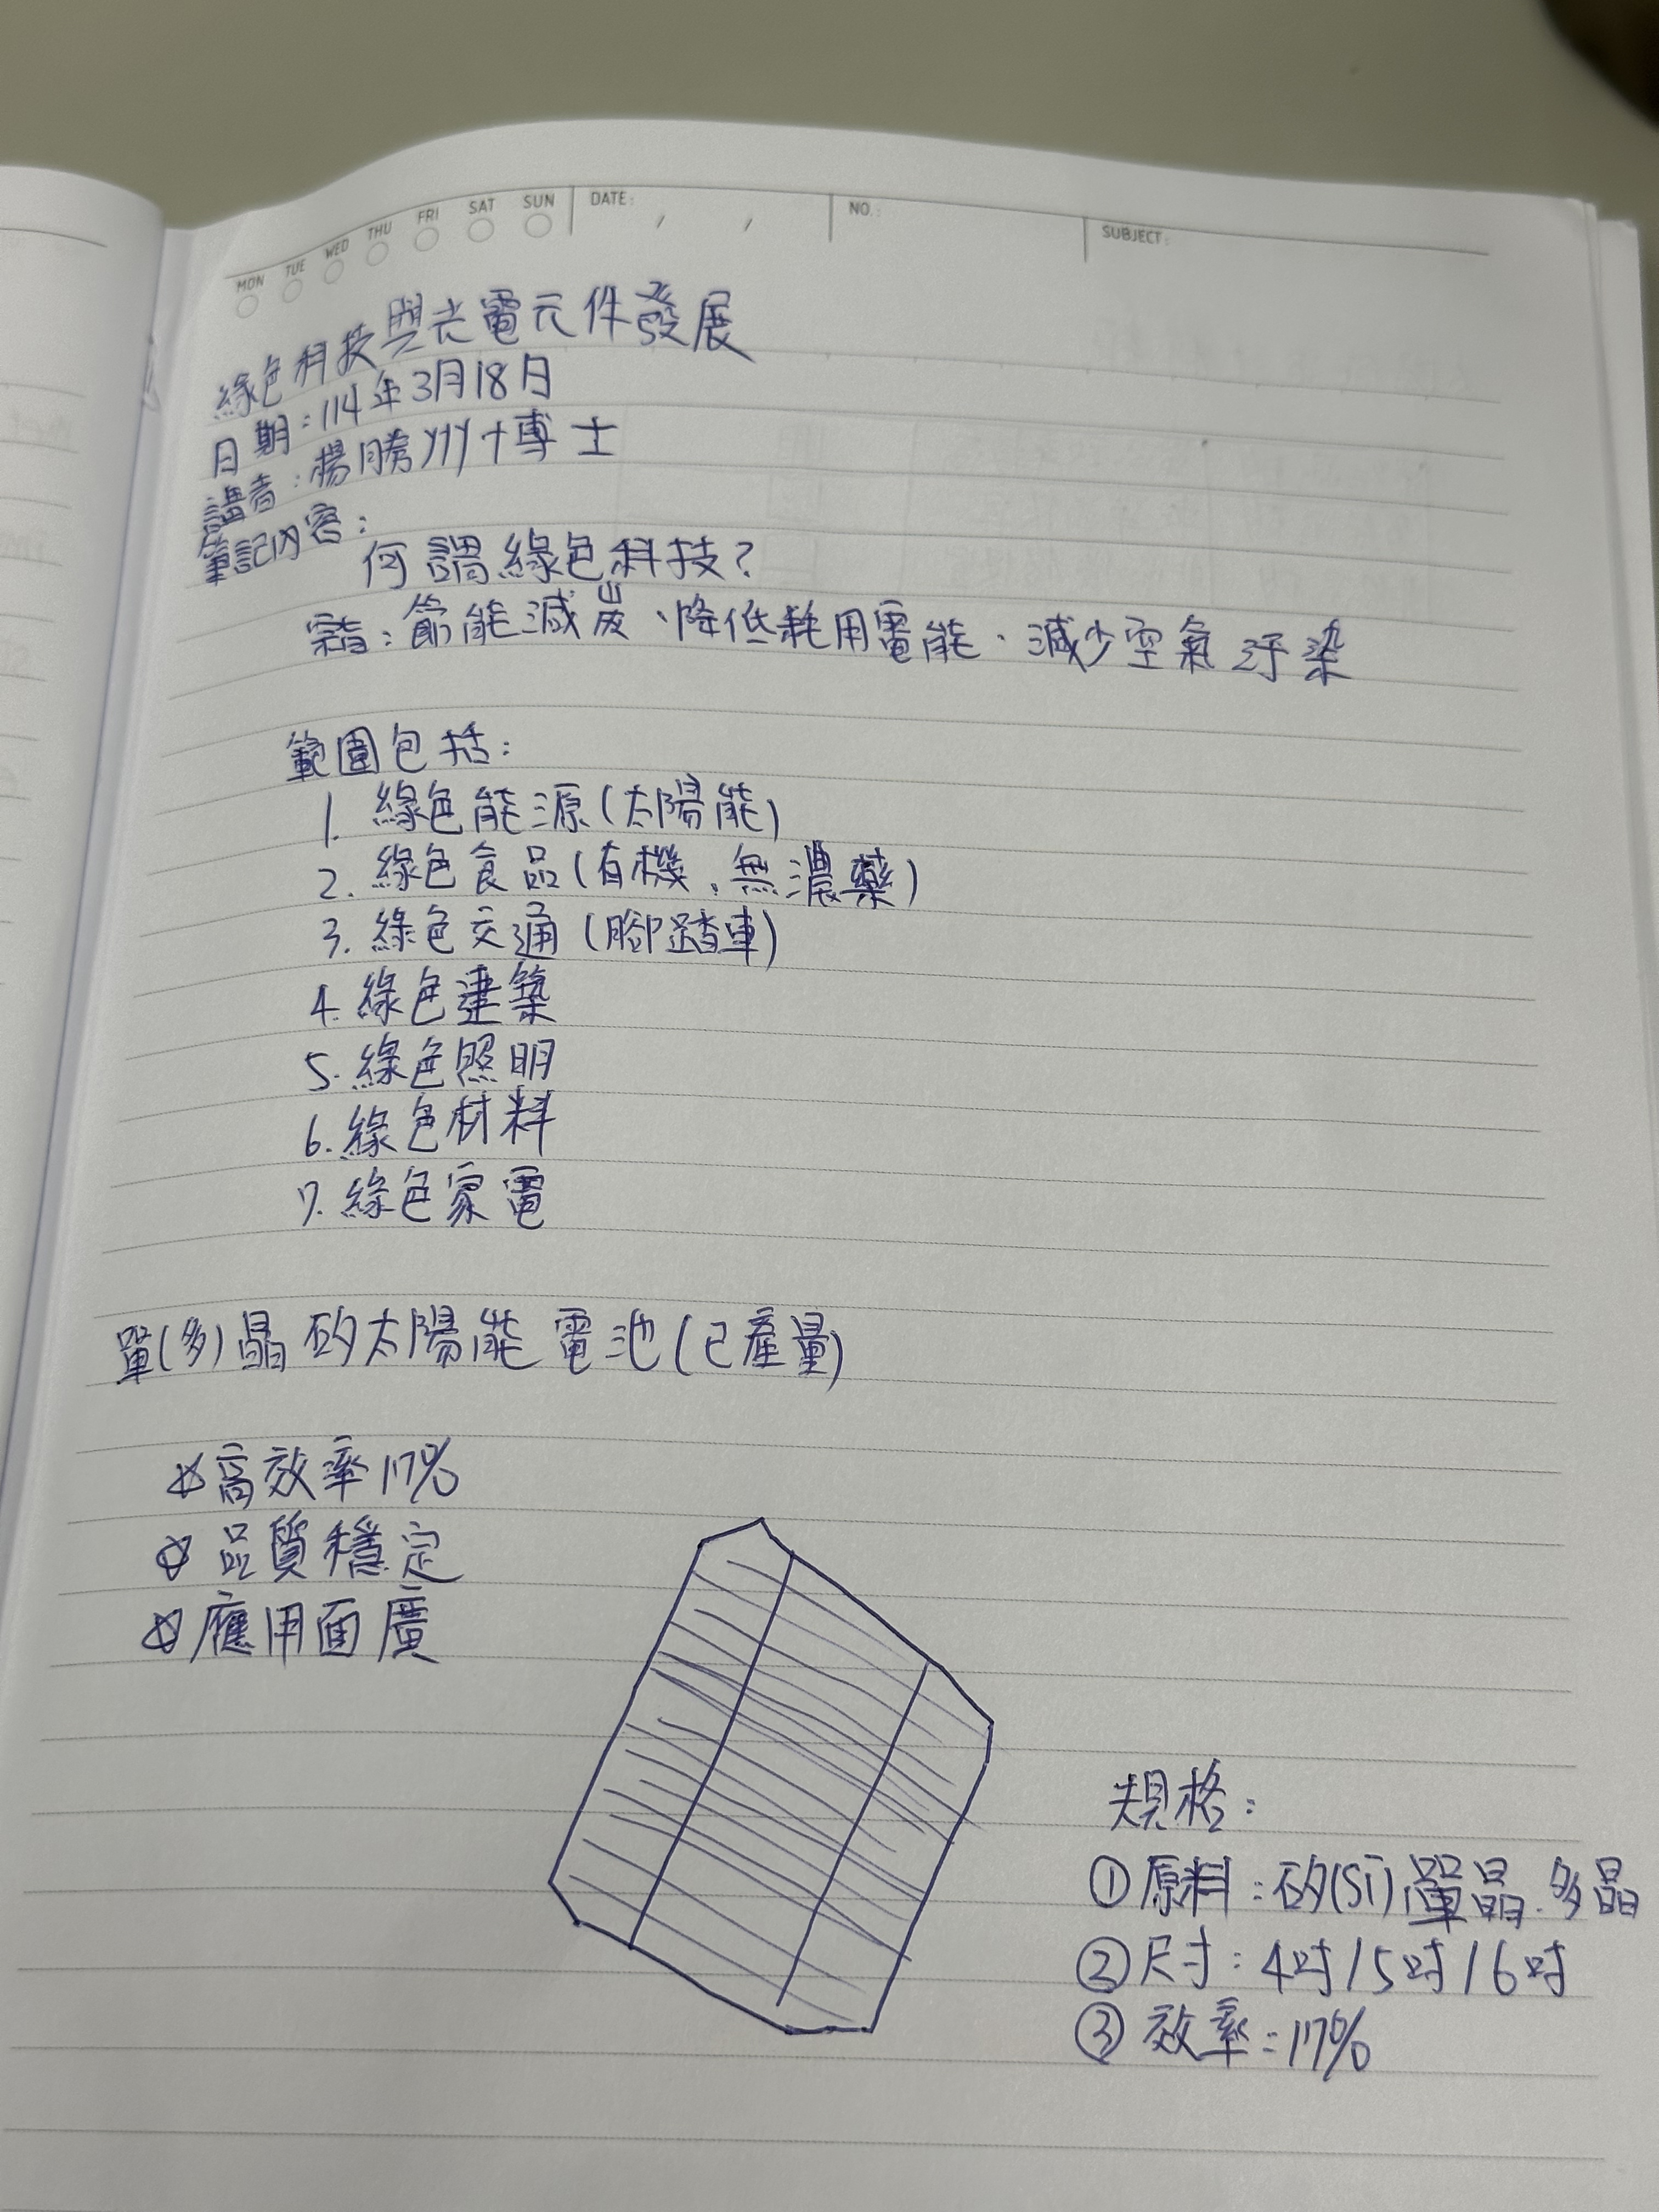 MON TUE WED THU FRI SAT SUN DATE: / / NO.: SUBJECT:
綠色科技與光電元件發展
日期:114年3月18日
講者:楊勝州博士
筆記內容:
何謂綠色科技?
宗旨:節能減炭、降低耗用電能、減少空氣汙染
範圍包括:
1. 綠色能源(太陽能)
2. 綠色食品(有機、無濃藥)
3. 綠色交通(腳踏車)
4. 綠色建築
5. 綠色照明
6. 綠色材料
7. 綠色家電
單(多)晶矽太陽能電池(已產量)
☆高效率17%
☆品質穩定
☆應用面廣
規格:
①原料:矽(Si)單晶、多晶
②尺寸:4吋/5吋/6吋
③效率:17%